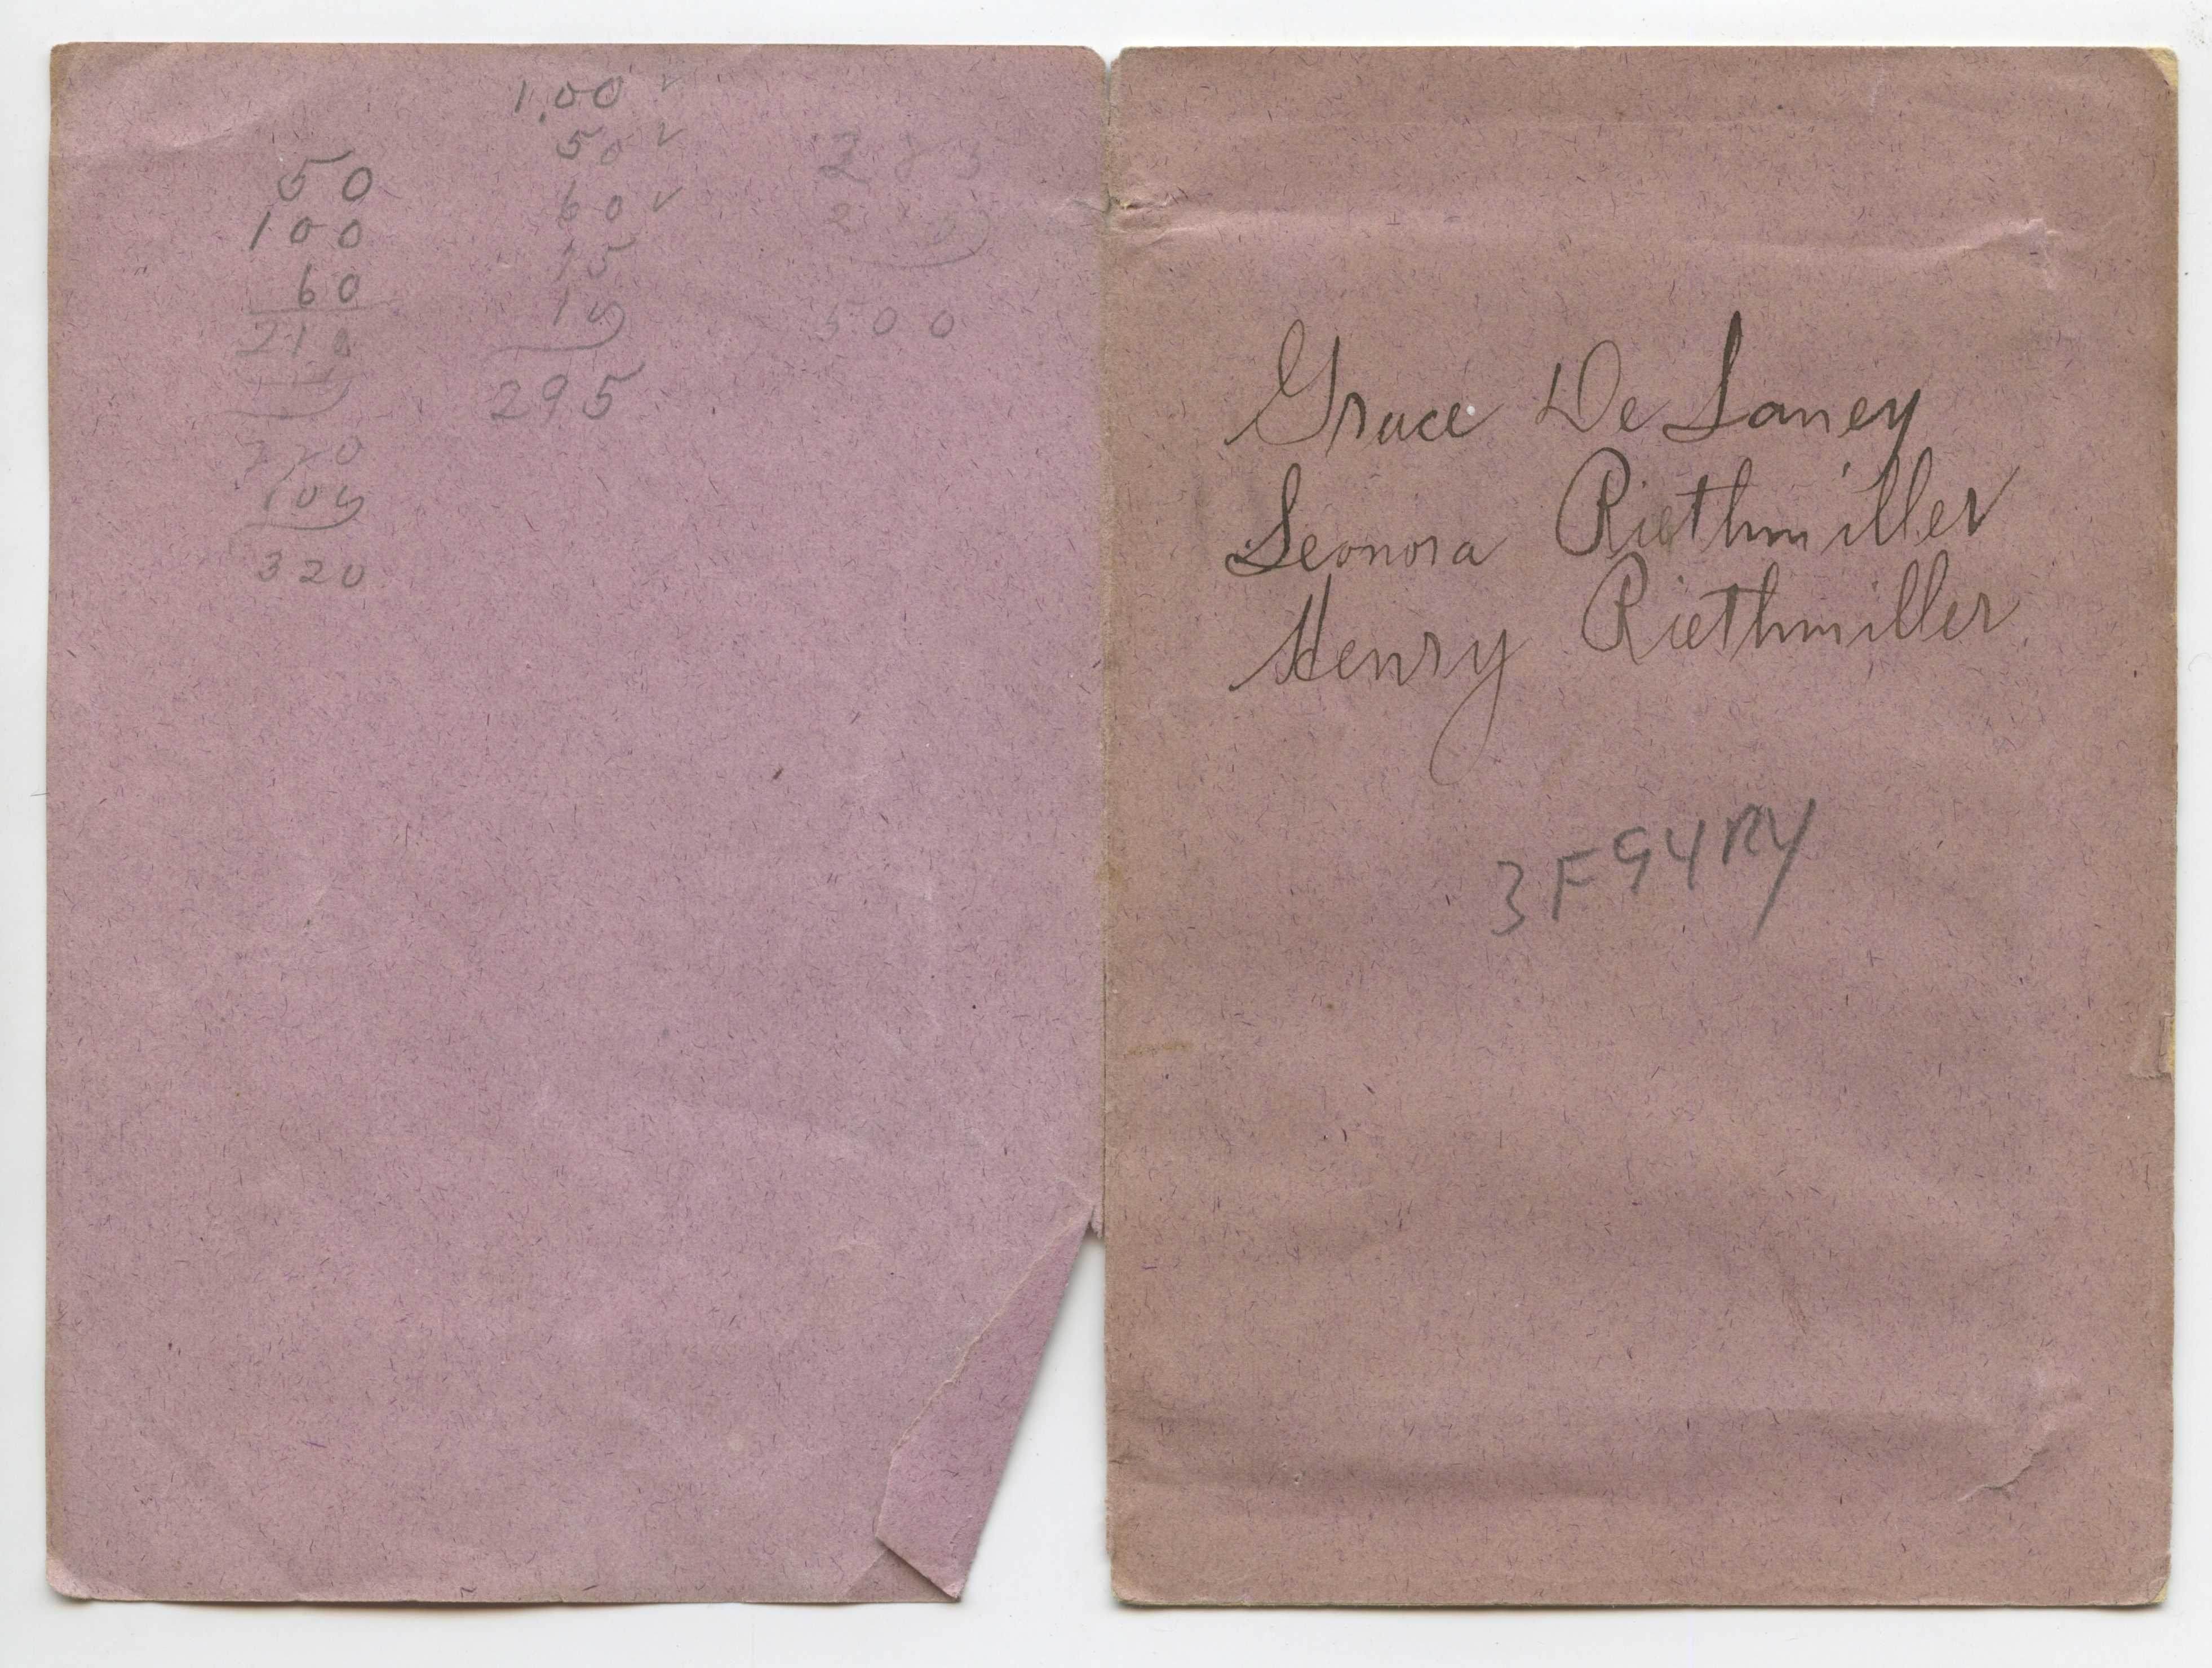 50
100
60
210
320
1.00 ✓
50 ✓
60 ✓
75
10
295
500
Grace De Laney
Leonora Riethmiller
Henry Riethmiller
3F94RY